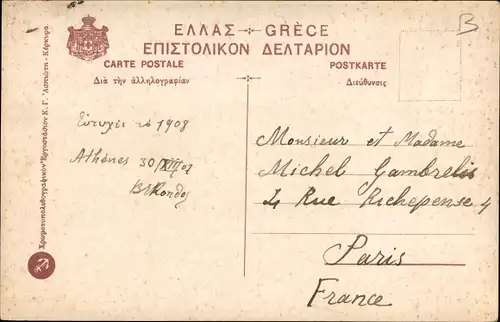 B
ΕΛΛΑΣ - GRÈCE
ΕΠΙΣΤΟΛΙΚΟΝ ΔΕΛΤΑΡΙΟΝ
CARTE POSTALE POSTKARTE
Διὰ τὴν ἀλληλογραφίαν Διεύθυνσις
Χρωμοτυπολιθογραφικὸν Ἐργοστάσιον Κ. Γ. Ἀσπιώτη - Κέρκυρα
Εὐτυχὲς τὸ 1908
Athènes 30/XII/07
Monsieur et Madame
Michel Gambrelis
4 Rue Richepense 4
Paris
France